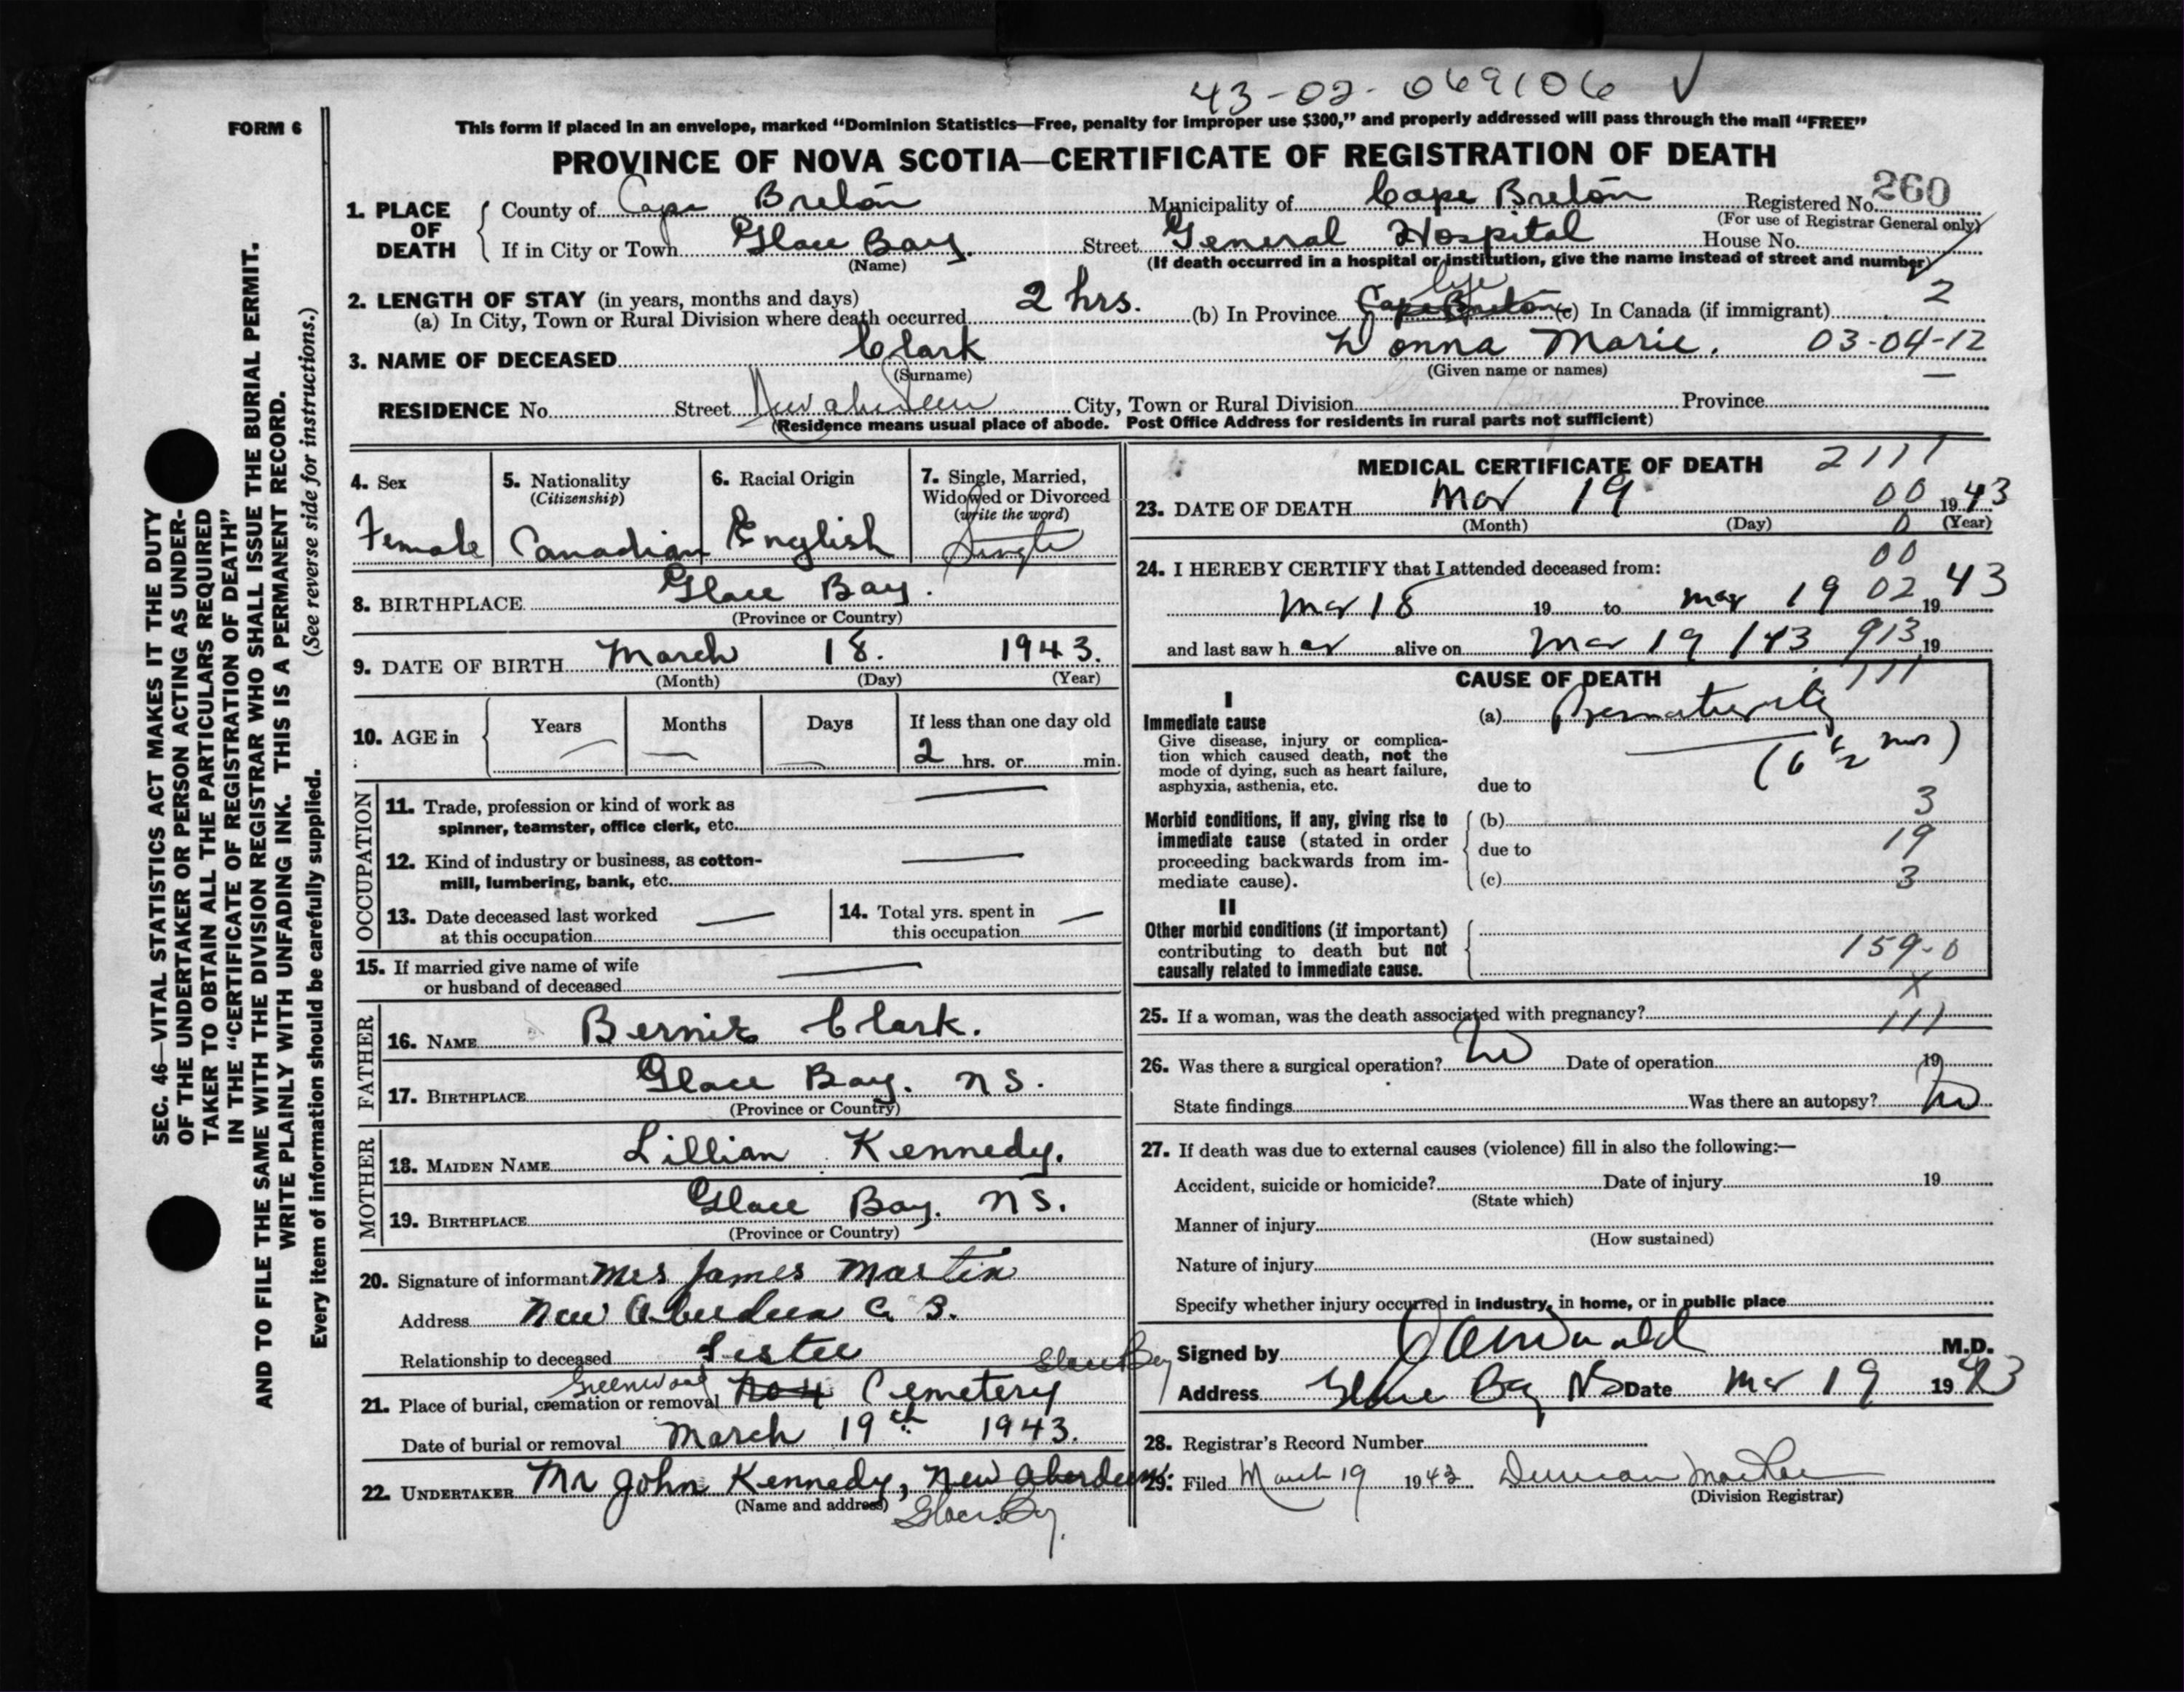 43-02-069106 ✓
FORM 6
This form if placed in an envelope, marked "Dominion Statistics—Free, penalty for improper use $300," and properly addressed will pass through the mail "FREE"
PROVINCE OF NOVA SCOTIA—CERTIFICATE OF REGISTRATION OF DEATH
1. PLACE OF DEATH
County of Cape Breton Municipality of Cape Breton Registered No. 260
(For use of Registrar General only)
If in City or Town Glace Bay. Street General Hospital House No.
(Name) (If death occurred in a hospital or institution, give the name instead of street and number)
2. LENGTH OF STAY (in years, months and days)
(a) In City, Town or Rural Division where death occurred 2 hrs. (b) In Province Cape Breton life (c) In Canada (if immigrant) 2
3. NAME OF DECEASED Clark Donna Marie. 03-04-12
(Surname) (Given name or names)
RESIDENCE No. Street New Aberdeen City, Town or Rural Division Province
(Residence means usual place of abode. Post Office Address for residents in rural parts not sufficient)
SEC. 46—VITAL STATISTICS ACT MAKES IT THE DUTY
OF THE UNDERTAKER OR PERSON ACTING AS UNDER-
TAKER TO OBTAIN ALL THE PARTICULARS REQUIRED
IN THE "CERTIFICATE OF REGISTRATION OF DEATH"
AND TO FILE THE SAME WITH THE DIVISION REGISTRAR WHO SHALL ISSUE THE BURIAL PERMIT.
WRITE PLAINLY WITH UNFADING INK. THIS IS A PERMANENT RECORD.
Every item of information should be carefully supplied. (See reverse side for instructions.)
4. Sex
Female
5. Nationality
(Citizenship)
Canadian
6. Racial Origin
English
7. Single, Married,
Widowed or Divorced
(write the word)
Single
8. BIRTHPLACE Glace Bay.
(Province or Country)
9. DATE OF BIRTH March 18. 1943.
(Month) (Day) (Year)
10. AGE in Years Months Days If less than one day old
2 hrs. or min.
OCCUPATION
11. Trade, profession or kind of work as
spinner, teamster, office clerk, etc.
12. Kind of industry or business, as cotton-
mill, lumbering, bank, etc.
13. Date deceased last worked
at this occupation
14. Total yrs. spent in
this occupation
15. If married give name of wife
or husband of deceased
FATHER
16. NAME Bernie Clark.
17. BIRTHPLACE Glace Bay. NS.
(Province or Country)
MOTHER
18. MAIDEN NAME Lillian Kennedy.
19. BIRTHPLACE Glace Bay. NS.
(Province or Country)
20. Signature of informant Mrs James Martin
Address New Aberdeen C. B.
Relationship to deceased Sister
21. Place of burial, cremation or removal Greenwood No 4 Cemetery Glace Bay
Date of burial or removal March 19th 1943.
22. UNDERTAKER Mr John Kennedy, New Aberdeen.
(Name and address) Glace Bay.
MEDICAL CERTIFICATE OF DEATH 2111
23. DATE OF DEATH Mar 19 00 1943
(Month) (Day) 0 (Year)
24. I HEREBY CERTIFY that I attended deceased from: 00
Mar 18 19 to Mar 19 02 1943
and last saw her alive on Mar 19 / 43 913 19
CAUSE OF DEATH 111
I
Immediate cause
Give disease, injury or complica-
tion which caused death, not the
mode of dying, such as heart failure,
asphyxia, asthenia, etc.
(a) Prematurity
(6 1/2 mos)
due to
3
Morbid conditions, if any, giving rise to
immediate cause (stated in order
proceeding backwards from im-
mediate cause).
(b)
19
due to
(c) 3
II
Other morbid conditions (if important)
contributing to death but not
causally related to immediate cause.
159-0
X
25. If a woman, was the death associated with pregnancy? 111
26. Was there a surgical operation? No Date of operation 19
State findings Was there an autopsy? No
27. If death was due to external causes (violence) fill in also the following:—
Accident, suicide or homicide? Date of injury 19
(State which)
Manner of injury
(How sustained)
Nature of injury
Specify whether injury occurred in industry, in home, or in public place
Signed by M.D.
Address Glace Bay NS Date Mar 19 1943
28. Registrar's Record Number
29. Filed March 19 1943 Duncan MacRae
(Division Registrar)